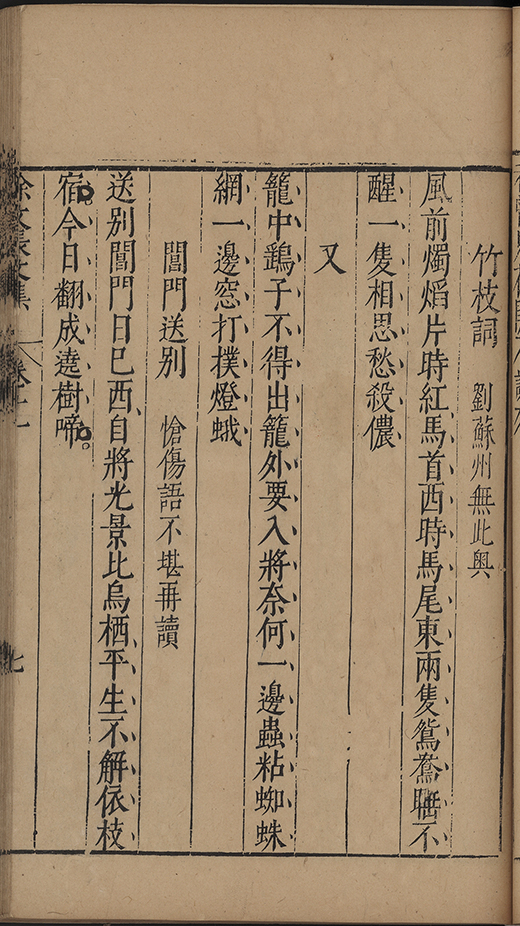 竹枝詞　劉蘇州無此奥
風前燭熖片時紅馬首西時馬尾東兩隻鴛鴦睡不
醒一隻相思愁殺儂
又
籠中鷄子不得出籠外要入將奈何一邊蟲粘蜘蛛
網一邊窓打撲燈蛾
閶門送别　愴傷語不堪再讀
送别閶門日已西自將光景比烏栖平生不解依枝
宿今日翻成遶樹啼
徐文長文集　卷十一
七